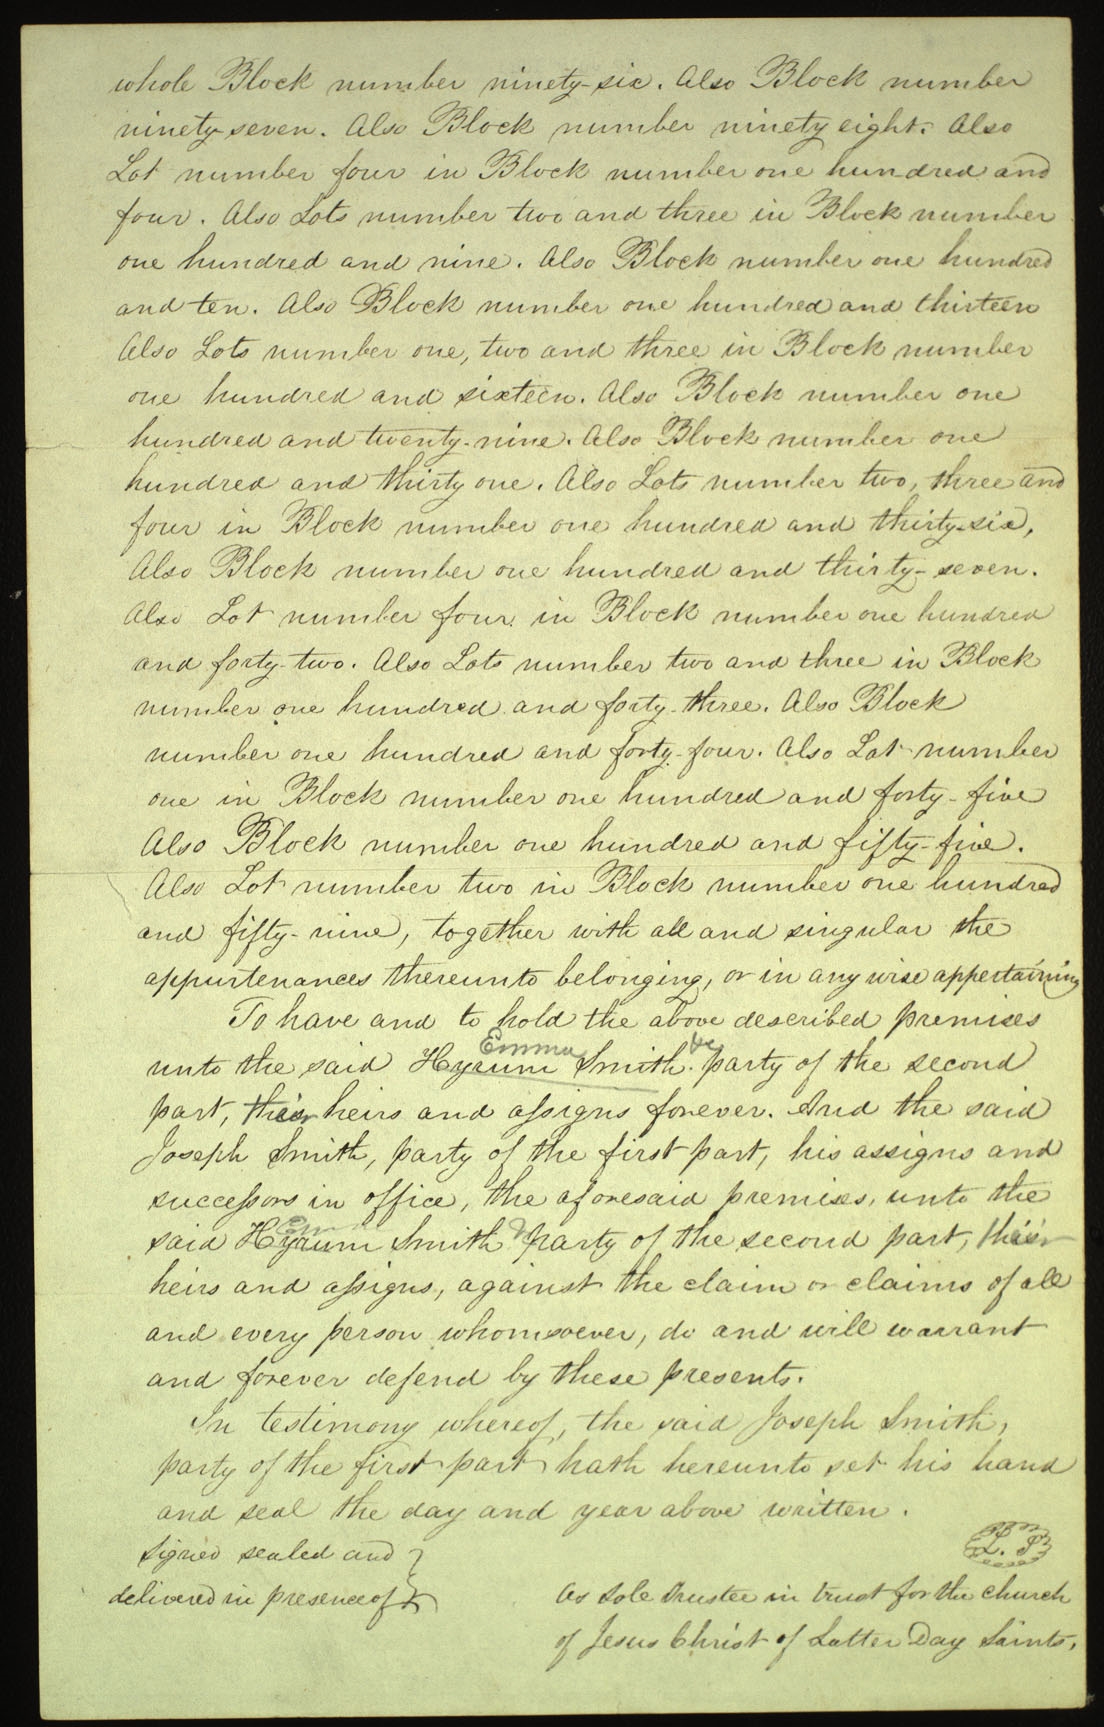 whole Block number ninety-six. Also Block number
ninety-seven. Also Block number ninety eight. Also
Lot number four in Block number one hundred and
four. Also Lots number two and three in Block number
one hundred and nine. Also Block number one hundred
and ten. Also Block number one hundred and thirteen
Also Lots number one, two and three in Block number
one hundred and sixteen. Also Block number one
hundred and twenty-nine. Also Block number one
hundred and thirty one. Also Lots number two, three and
four in Block number one hundred and thirty-six,
Also Block number one hundred and thirty-seven.
Also Lot number four in Block number one hundred
and forty-two. Also Lots number two and three in Block
number one hundred and forty-three. Also Block
number one hundred and forty-four. Also Lot number
one in Block number one hundred and forty-five
Also Block number one hundred and fifty-five.
Also Lot number two in Block number one hundred
and fifty-nine, together with all and singular the
appurtenances thereunto belonging, or in any wise appertaining
To have and to hold the above described premises
Emma &c
unto the said Hyrum Smith party of the second
part, their heirs and assigns forever. And the said
Joseph Smith, party of the first part, his assigns and
successors in office, the aforesaid premises, unto the
Em
said Hyrum Smith party of the second part, their
heirs and assigns, against the claim or claims of all
and every person whomsoever, do and will warrant
and forever defend by these presents.
In testimony whereof, the said Joseph Smith,
party of the first part hath hereunto set his hand
and seal the day and year above written.
Signed sealed and
delivered in presence of
L. S.
As sole trustee in trust for the church
of Jesus Christ of Latter Day Saints,